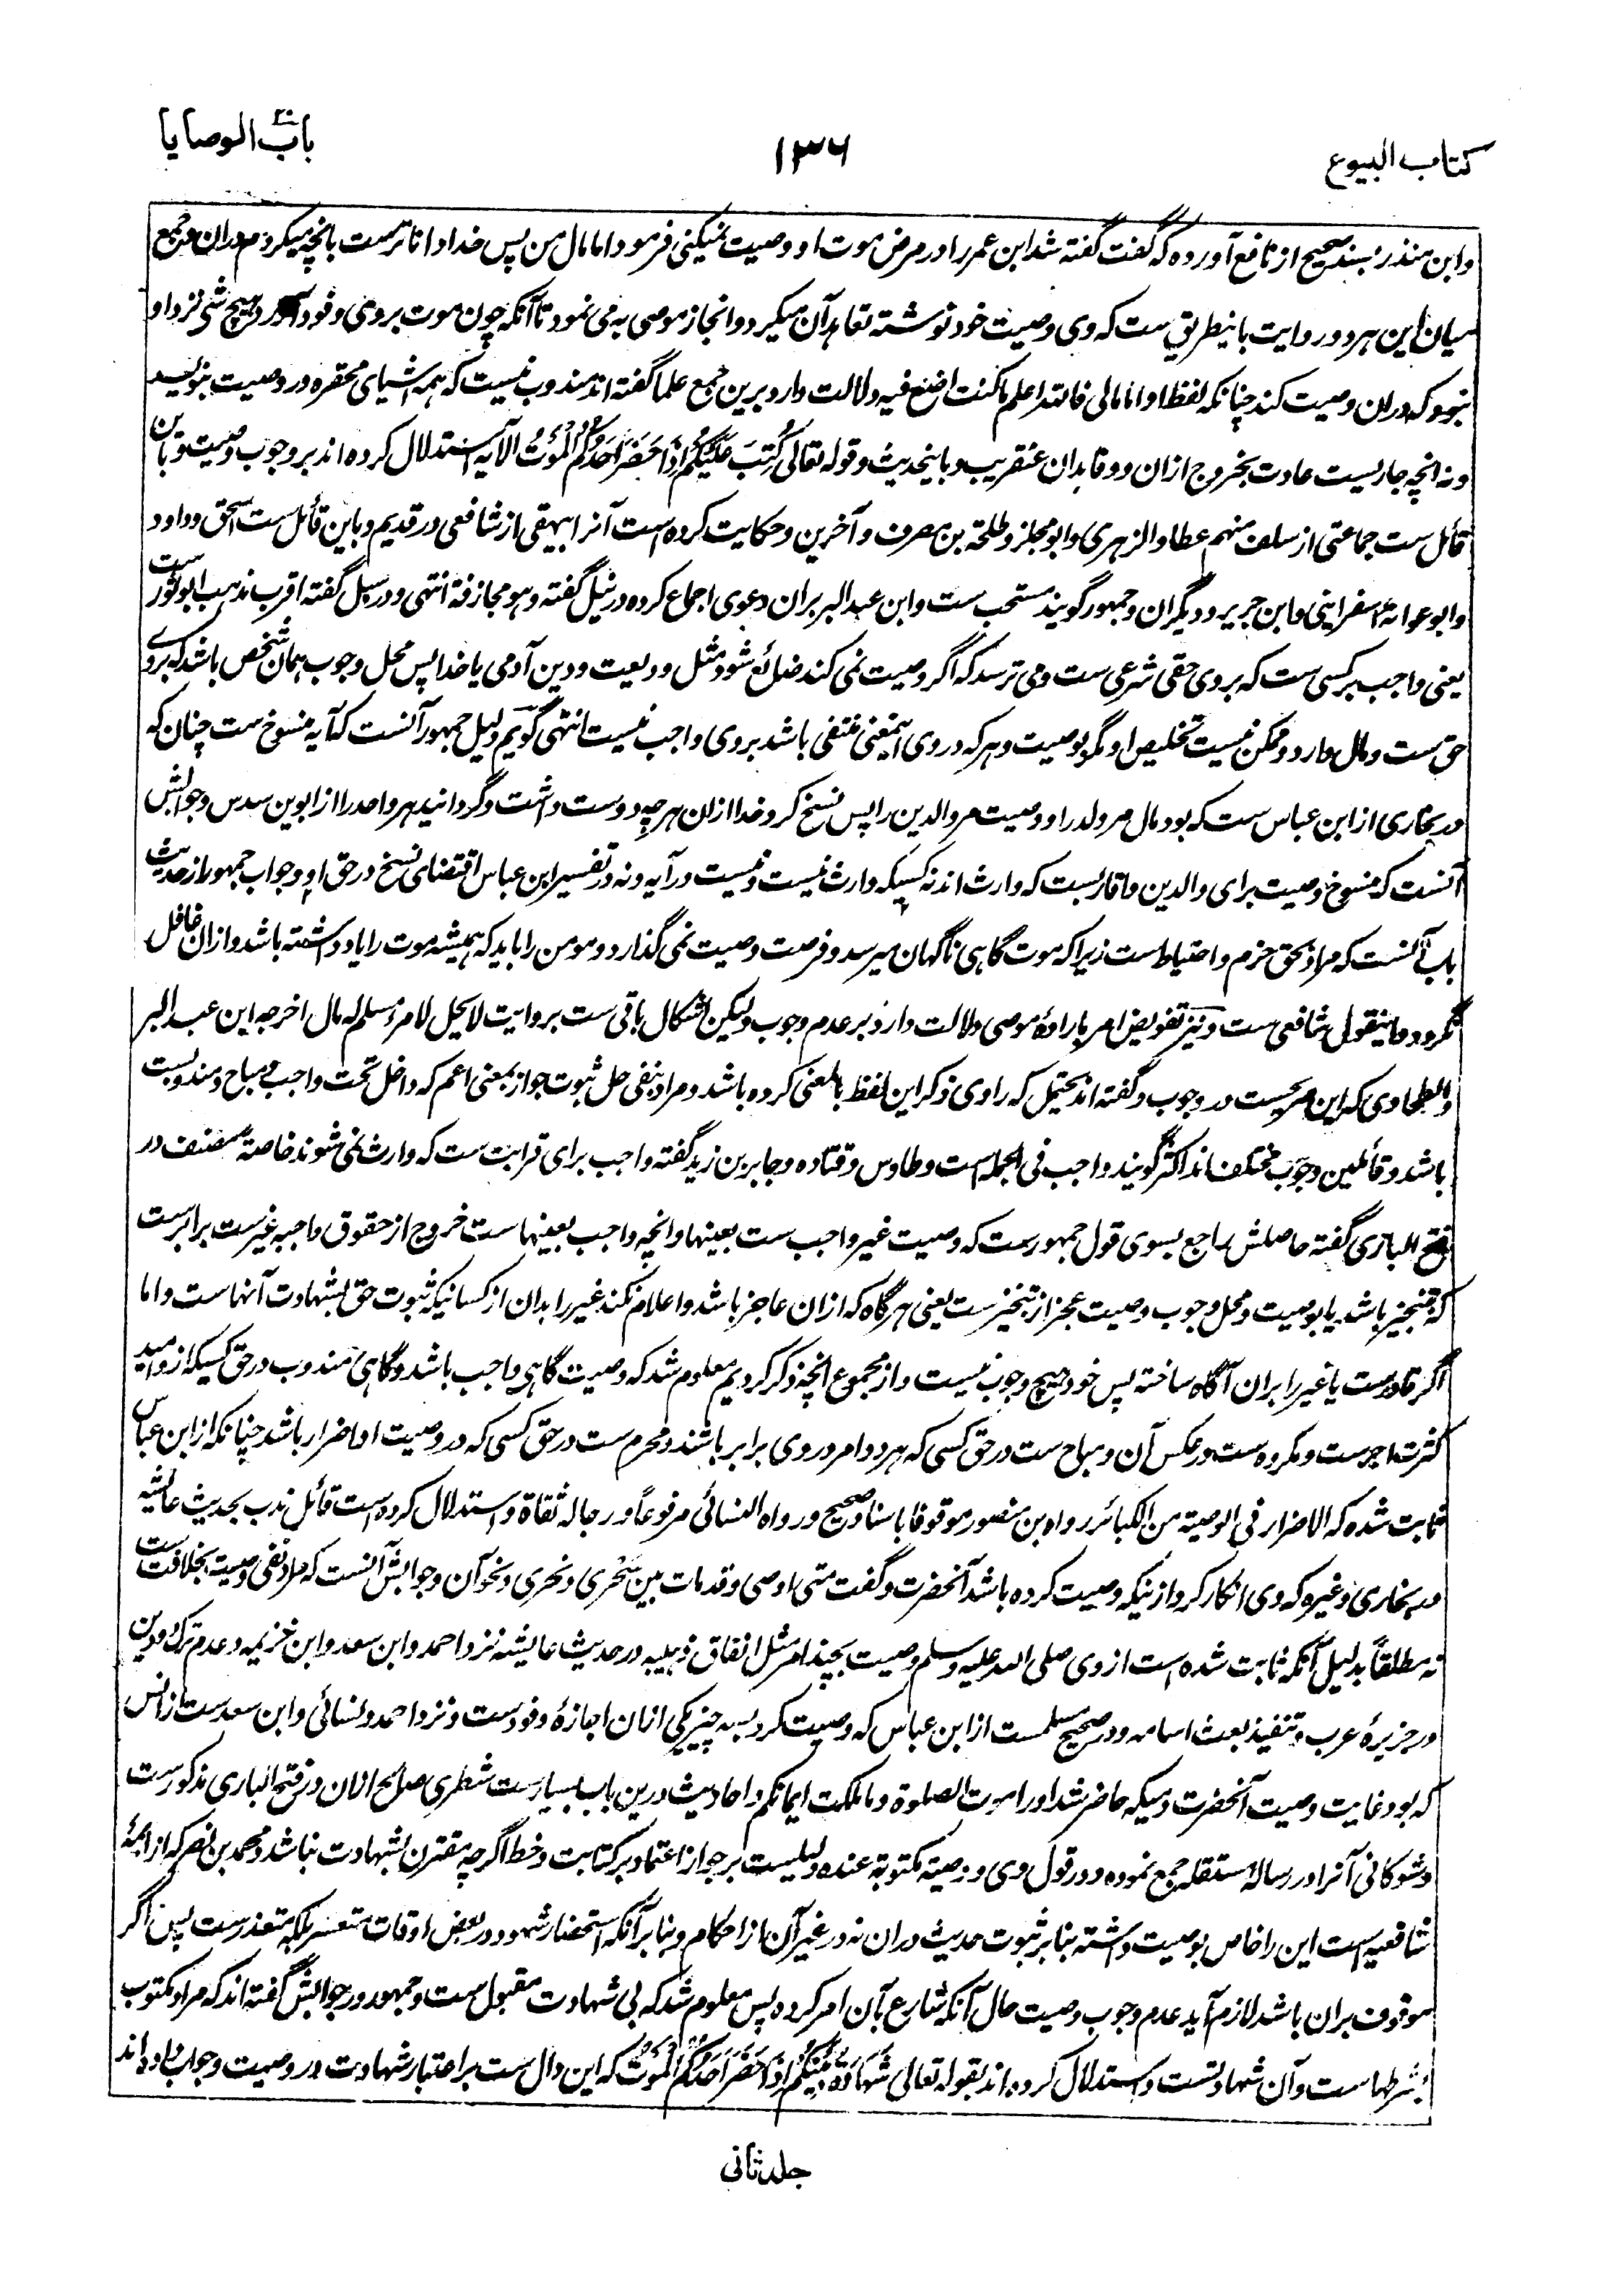 کتاب البیوع
۱۳۶
باب الوصایا
وابن منذر بسند صحیح از نافع آورده که گفت گفته شد ابن عمر را در مرض موت او وصیت نمیکنی فرمود اما مال من پس خدا داناتر ست بانچه میکردم دران و جمع
میان این هر دو روایت باینطریق ست که وی وصیت خود نوشته تعاهد آن میکرد و انجاز موصی به می نمود تا آنکه چون موت بروی وفود آورد هیچ شی نزد او
نبود که دران وصیت کند چنانکه لفظ او اما مالی فالله اعلم ما کنت اصنع فیه دلالت دارد برین جمع علما گفته اند مندوب نیست که همه اشیای محقره در وصیت بنویسد
و نه انچه جاریست عادت بخروج ازان و وفا بدان عنقریب و باینحدیث و قوله تعالی كُتِبَ عَلَيْكُمْ إِذَا حَضَرَ أَحَدَكُمُ الْمَوْتُ الآیه استدلال کرده اند بر وجوب وصیت و باین
قائل ست جماعتی از سلف منهم عطا و الزهری و ابو مجلز و طلحة بن مصرف و آخرین و حکایت کرده است آنرا بیهقی از شافعی در قدیم و باین قائل ست اسحق و داود
و ابو عوانه اسفراینی و ابن جریر و دیگران و جمهور گویند مستحب ست و ابن عبد البر بران دعوی اجماع کرده در نیل گفته و هو مجازفة انتهی و در سبل گفته اقرب مذهب ابو ثور ست
یعنی واجب بر کسی ست که بروی حقی شرعی ست و می ترسد که اگر وصیت نمی کند ضائع شود مثل ودیعت و دین آدمی یا خدا پس محل وجوب همان شخص باشد که بروے
حق ست و مال دارد و ممکن نیست تخلیص او مگر بوصیت و هر که در وی اینمعنی منتفی باشد بروی واجب نیست انتهی گویم دلیل جمهور آنست که آیه منسوخ ست چنان که
در بخاری از ابن عباس ست که بود مال مر ولد را و وصیت مر والدین را پس نسخ کرد خدا ازان هر چه دوست داشت و گردانید هر واحد را از ابوین سدس و جوابش
آنست که منسوخ وصیت برای والدین و اقاربست که وارث اند نه کسیکه وارث نیست و نیست در آیه و نه در تفسیر ابن عباس اقتضای نسخ در حق او و جواب جمهور از حدیث
باب آنست که مراد بحق حزم و احتیاط ست زیرا که موت گاهی ناگهان میرسد و فرصت وصیت نمی گذارد و مومن را باید که همیشه موت را یاد داشته باشد و ازان غافل
نگردد و اینقول شافعی ست و نیز تفویض امر بارادهٔ موصی دلالت دارد بر عدم وجوب ولیکن اشکال باقی ست بروایت لا یحل لامرء مسلم له مال اخرجه ابن عبد البر
و الطحاوی که این صریحست در وجوب و گفته اند یحتمل که راوی ذکر این لفظ بالمعنی کرده باشد و مراد بنفی حل ثبوت جواز بمعنی اعم که داخل تحت واجب و مباح و مندوبست
باشد و قائلین وجوب مختلف اند اکثر گویند واجب فی الجمله است و طاوس و قتاده و جابر بن زید گفته واجب برای قرابت ست که وارث نمی شوند خاصة مصنف در
فتح الباری گفته حاصلش راجع بسوی قول جمهورست که وصیت غیر واجب ست بعینها و انچه واجب بعینها ست خروج از حقوق واجبه غیرست برابرست
که بتنجیز باشد یا بوصیت و محل وجوب وصیت عجز از تنجیز ست یعنی هر گاه که ازان عاجز باشد و اعلام نکند غیر را بدان از کسانیکه ثبوت حق بشهادت آنها ست و اما
اگر قادرست یا غیر را بران آگاه ساخته پس خود هیچ وجوب نیست و از مجموع انچه ذکر کردیم معلوم شد که وصیت گاهی واجب باشد و گاهی مندوب در حق کسیکه ازو امید
کثرت اجرست و مکروه ست در عکس آن و مباح ست در حق کسی که هر دو امر در وی برابر باشند و محرم ست در حق کسی که در وصیت او اضرار باشد چنانکه از ابن عباس
ثابت شده که الاضرار فی الوصیة من الکبائر رواه بن منصور موقوفا باسناد صحیح و رواه النسائی مرفوعاً و رجاله ثقاة و استدلال کرده ست قائل ندب بحدیث عایشه
در بخاری و غیره که وی انکار کرد از نیکه وصیت کرده باشد آنحضرت و گفت متی اوصی و قد مات بین سَحْری و نحری و نحو آن و جوابش آنست که مراد نفی وصیت بخلافت ست
نه مطلقاً بدلیل آنکه ثابت شده است از وی صلی الله علیه و سلم وصیت بچند امر مثل انفاق ذهیبه در حدیث عایشه نزد احمد و ابن سعد و ابن خزیمه و عدم ترک دو دین
در جزیرهٔ عرب و تنفیذ بعث اسامه و در صحیح مسلمست از ابن عباس که وصیت کرد بسه چیز یکی ازان اجازهٔ وفودست و نزد احمد و نسائی و ابن سعد ست از انس
که بود غایت وصیت آنحضرت دمیکه حاضر شد او را موت الصلوة و ما ملکت ایمانکم و احادیث درین باب بسیارست شطری صالح ازان در فتح الباری مذکورست
و شوکانی آنرا در رسالهٔ مستقله جمع نموده و در قول وی و وصیته مکتوبة عنده دلیلیست بر جواز اعتماد بر کتابت و خط اگرچه مقترن بشهادت نباشد و محمد بن نصر که از ائمهٔ
شافعیه است این را خاص بوصیت داشته بنا بر ثبوت حدیث دران نه در غیر آن از احکام و بنا بر آنکه استحضار شهود در بعض اوقات متعسر بلکه متعذرست پس اگر
موقوف بران باشد لازم آید عدم وجوب وصیت حال آنکه شارع بآن امر کرده پس معلوم شد که بی شهادت مقبول ست و جمهور در جوابش گفته اند که مراد مکتوب
بشرطها ست و آن شهادتست و استدلال کرده اند بقوله تعالی شَهَادَةُ بَيْنِكُمْ إِذَا حَضَرَ أَحَدَكُمُ الْمَوْتُ که این دال ست بر اعتبار شهادت در وصیت و جواب داده اند
جلد ثانی